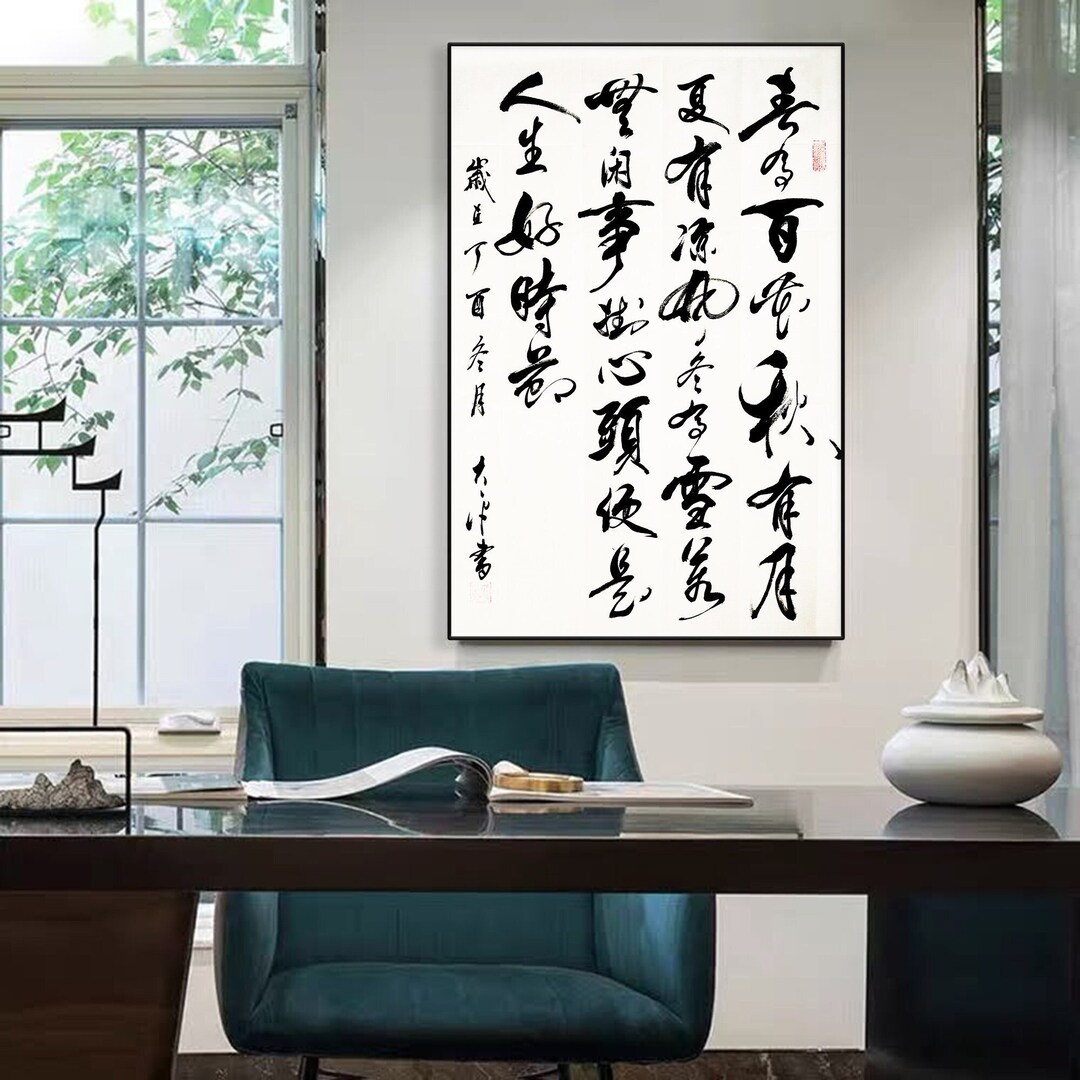 春有百花秋有月
夏有涼風冬有雪若
無閑事掛心頭便是
人生好時節
歲在丁酉冬月 大書